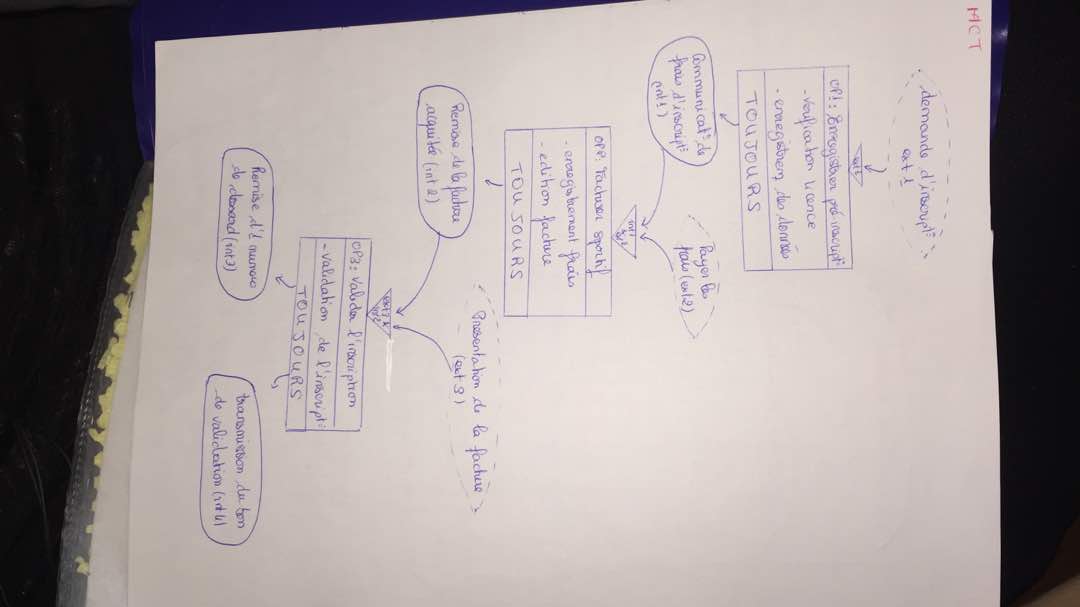 MCT
demande d'inscript°
ext 1
ext 1
OP1: Enregistrer pré inscript°
- verification licence
- enregistrem, des données
TOUJOURS
Communicat° de
frais d'inscript°
(int 1)
Payer les
frais (ext 2)
int 1
ext 2
OP2: Facturer sportif
- enregistrement frais
- edition facture
TOUJOURS
Remise de la facture
acquité (int 2)
Présentation de la facture
(ext 3)
ext 3 &
int 2
OP3: Valider l'inscription
- validation de l'inscript°
TOUJOURS
Remise d'1 numero
de dossard (int 3)
transmission du bon
de validation (int 4)